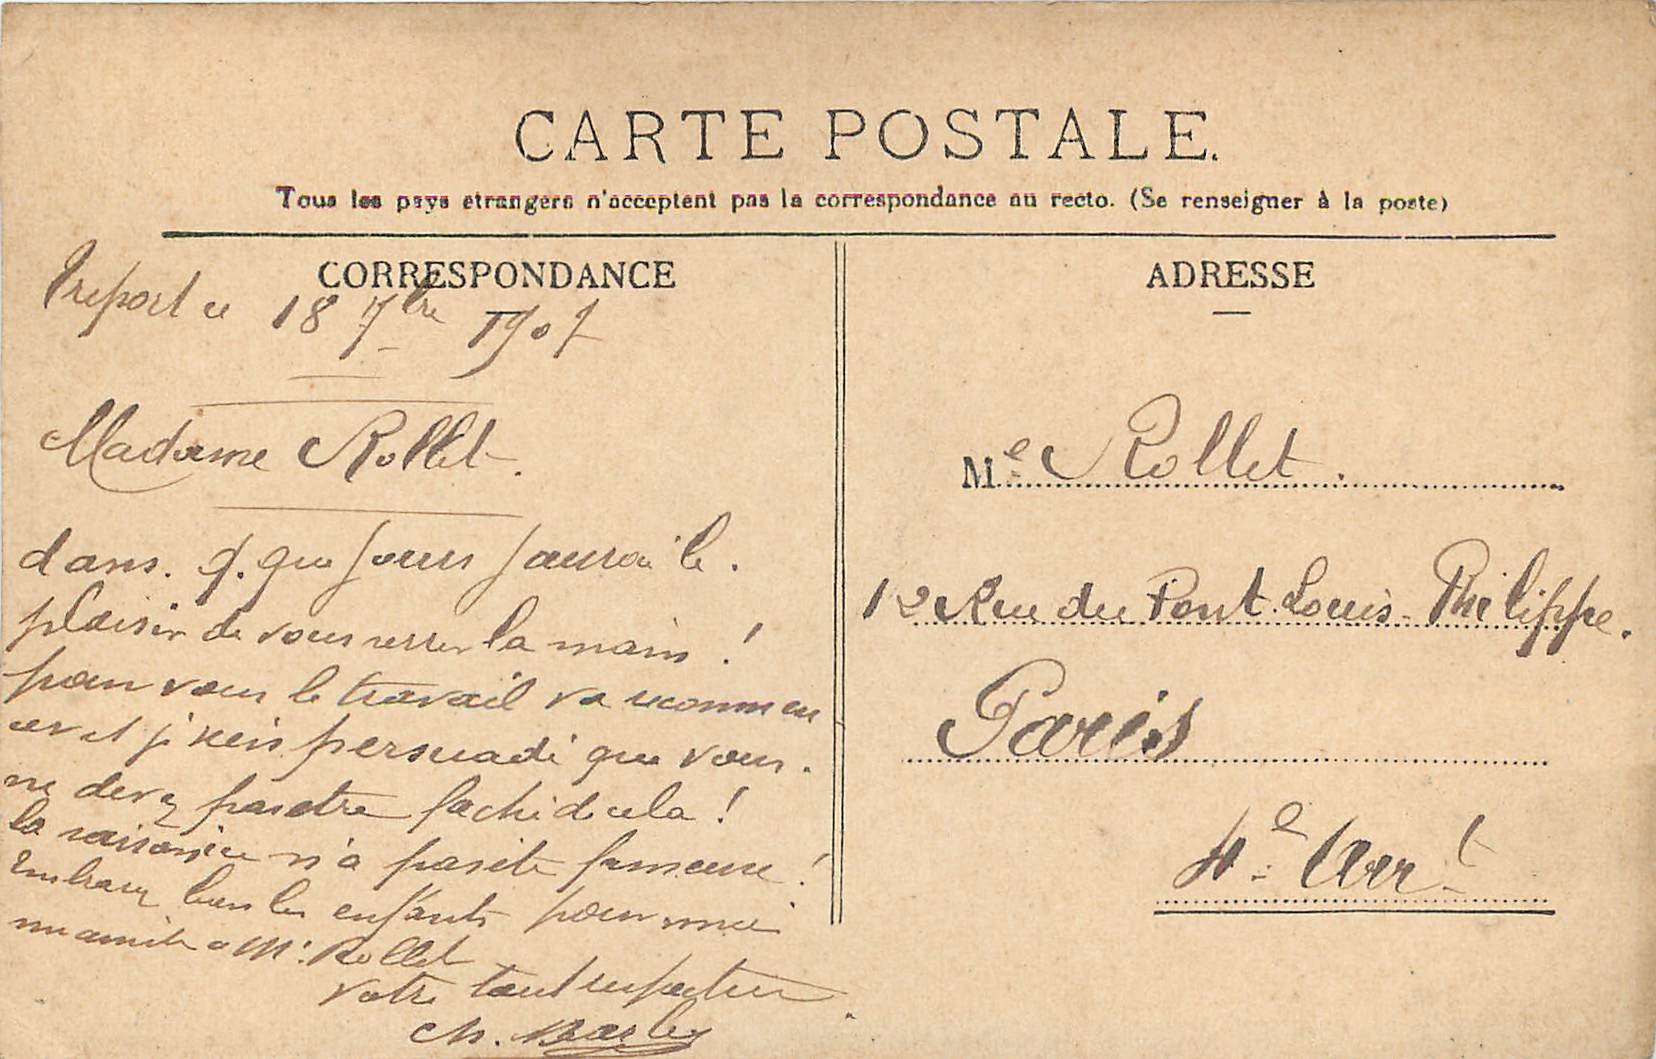 CARTE POSTALE.
Tous les pays etrangers n'acceptent pas la correspondance au recto. (Se renseigner à la poste)
CORRESPONDANCE
Treport ce 18 7bre 1907
Madame Rollet.
dans. q. que jours j'aurai le.
plaisir de vous serrer la main !
pour vous le travail va recommen
cer et j'suis persuadé que vous.
ne devez pas être faché de cela !
la saison n'a pas été fameuse !
Embrassez bien les enfants pour moi
mes amitiés a Mr. Rollet
Votre tout respectueux
Ch.
ADRESSE
Me Rollet.
12 Rue du Pont. Louis-Philippe.
Paris
4e Arrt